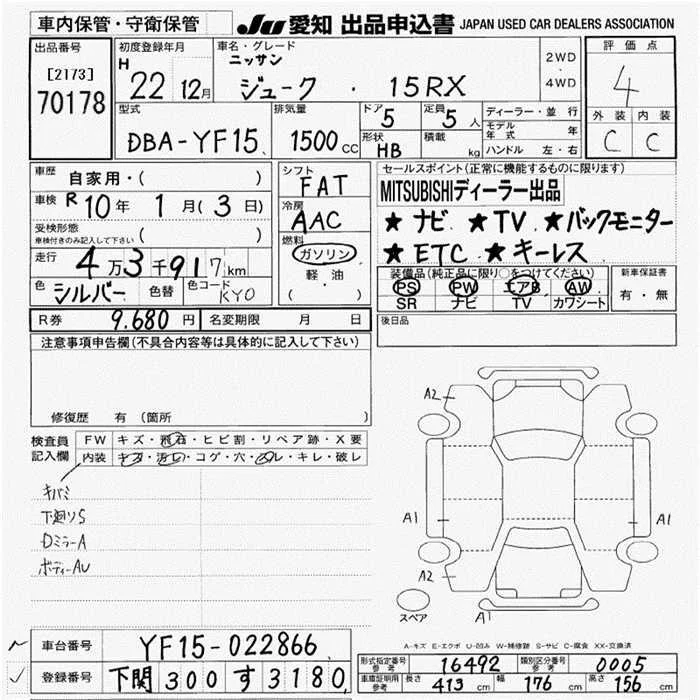 車内保管・守衛保管 JU 愛知 出品申込書 JAPAN USED CAR DEALERS ASSOCIATION
出品番号 初度登録年月 車名・グレード 2WD 評価点
[2173] H ニッサン ・
70178 22 12月 ジューク ・ 15RX 4WD 4
型式 排気量 ドア 定員 ディーラー・並 行 外装 内装
DBA-YF15 1500cc 5 5人 モデル年式 年 C C
形状 HB 積載 kg ハンドル 左・右
車歴 自家用・( ) シフト FAT セールスポイント(正常に機能するものに限ります)
車検 R10年 1月(3日) 冷房 AAC MITSUBISHIディーラー出品
受検形態 車検付きのみ記入して下さい ( ) 燃料 ★ナビ ★TV ★バックモニター
走行 4万3千917km ガソリン ★ETC ★キーレス
色 シルバー 色替 色コード KY0 軽油 ( ・ )
装備品(純正品に限り○をつけてください) 新車保証書
PS PW エアB AW 有・無
SR ナビ TV カワシート
R券 9.680円 名変期限 月 日 後日品
注意事項申告欄(不具合内容等は具体的に記入して下さい)
修復歴 有 (箇所 )
検査員記入欄 FW キズ・飛石・ヒビ割・リペア跡・X要
内装 キズ・汚レ・コゲ・穴・スレ・キレ・破レ
キバミ
下廻りS
DミラーA
ボディーAU
A2
A1 A1
A2
スペア A1
A-キズ E-エクボ U-凹み W-補修跡 S-サビ C-腐食 XX-交換済
車台番号 YF15-022866
登録番号 下関 300 す 3180
形式指定番号 参考 16492 類別区分番号 参考 0005
車庫証明用 参考 長さ 413cm 幅 176cm 高さ 156cm